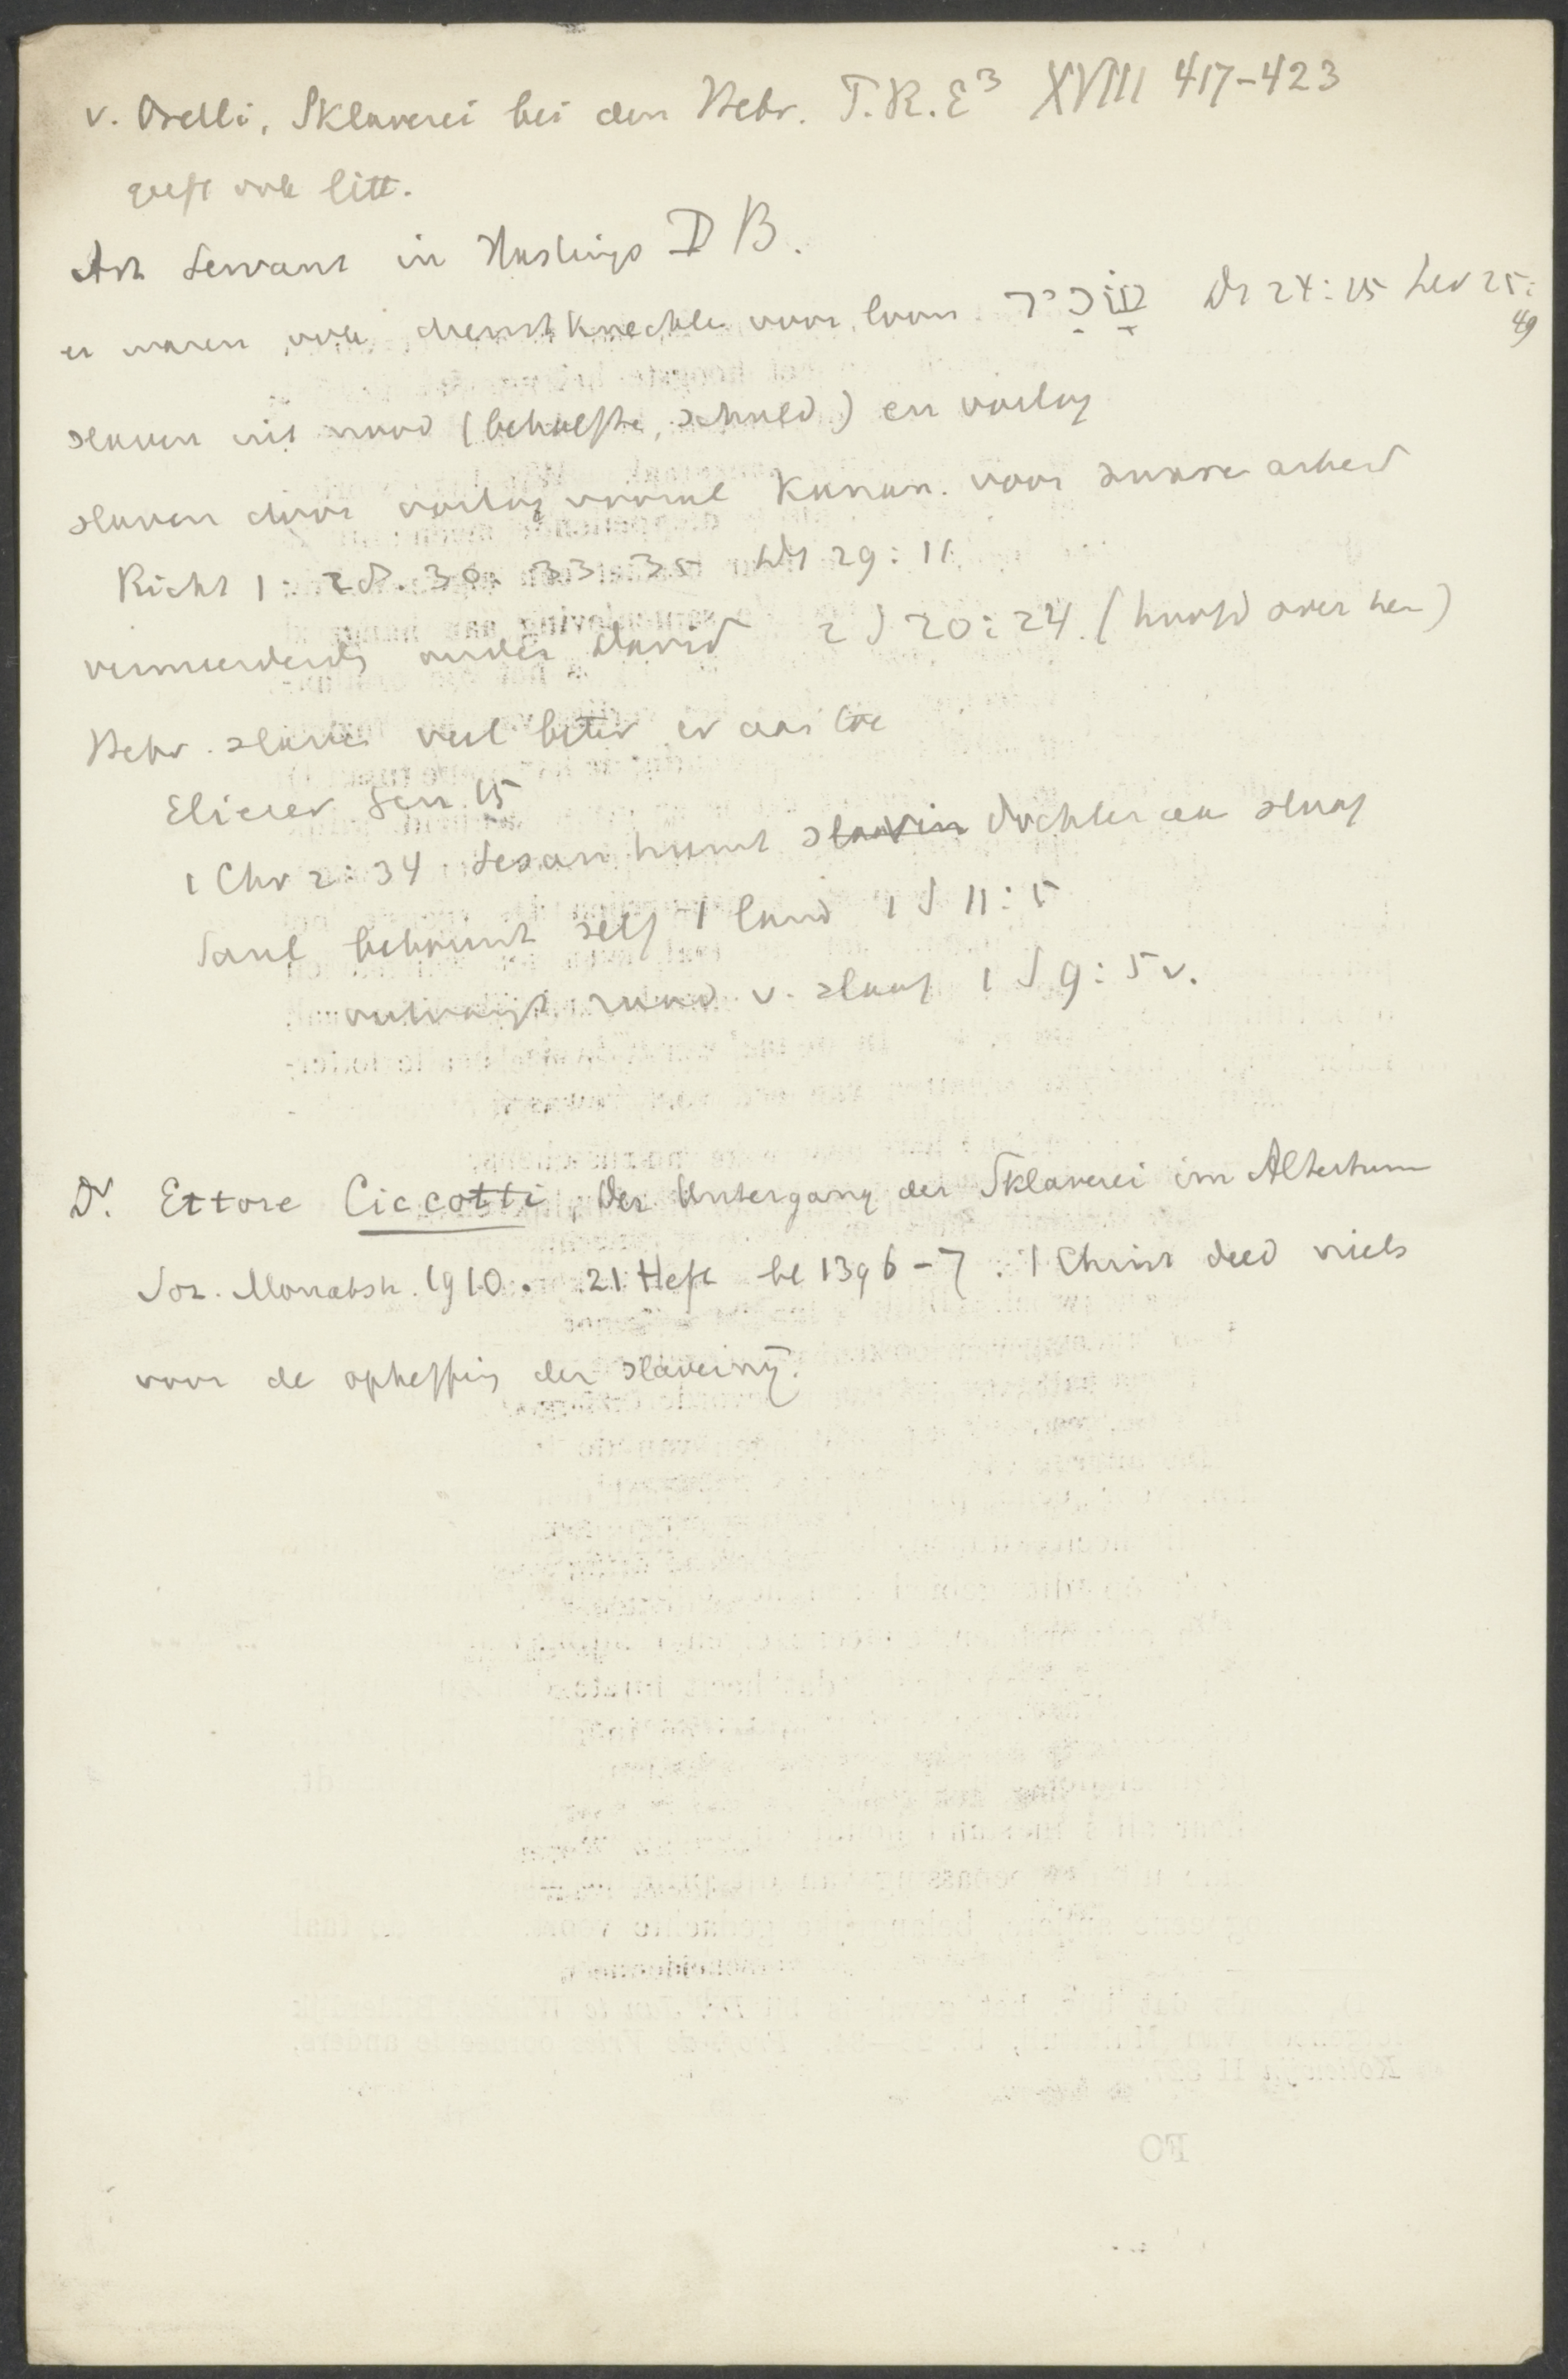 v. Orelli, Sklaverei bei den Hebr. P.R.E³ XVIII 417-423
geeft ook litt.
Art Servant in Hastings DB.
er waren ook dienstknechten voor loon שָׂכִיר Dt 24:15 Lev 25:
49
slaven uit nood (behoefte, schuld) en oorlog
slaven door oorlog vooral Kanaan. voor zware arbeid
Richt 1:28.30.33.35 Dt 29:11
vermeerderd onder David 2 S 20:24 (hoofd over hen)
Hebr. slaven veel beter er aan toe
Eliezer Gen. 15
1 Chr 2:34 Sesan huwt slavin dochter aan slaaf
Saul bebouwt zelf 't land 1 S 11:5
ontvangt raad v. slaaf 1 S 9:5v.
Dr. Ettore Ciccotti, Der Untergang der Sklaverei im Altertum
Soz. Monatsh. 1910. 21 Heft bl 1396-7. 't Christ deed niets
voor de opheffing der slavernij.